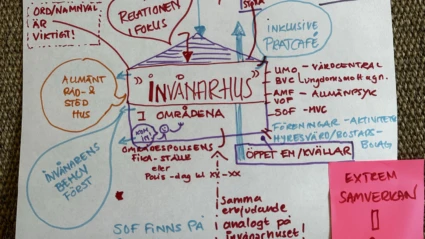 ORD/NAMNVAL
ÄR
VIKTIGT!
RELATIONEN
I FOKUS
INKLUSIVE
PRATCAFÉ
ALLMÄNT
RÅD- &
STÖD
HUS
» INVÅNARHUS »
I OMRÅDENA
UMO - VÅRDCENTRAL
BVC
AMF - ALLMÄNPSYK
VOP
SOF - MVC
FÖRENINGAR - AKTIVITETER
HYRESVÄRD/BOSTADS-
BOLAG
ÖPPET EM/KVÄLLAR
INVÅNARENS
BEHOV
FÖRST
FIKA-STÄLLE
eller
Polis-dag kl xx-xx
Samma
erbjudande
analogt på
invånarhuset!
SOF FINNS PÅ
EXTREM
SAMVERKAN
!